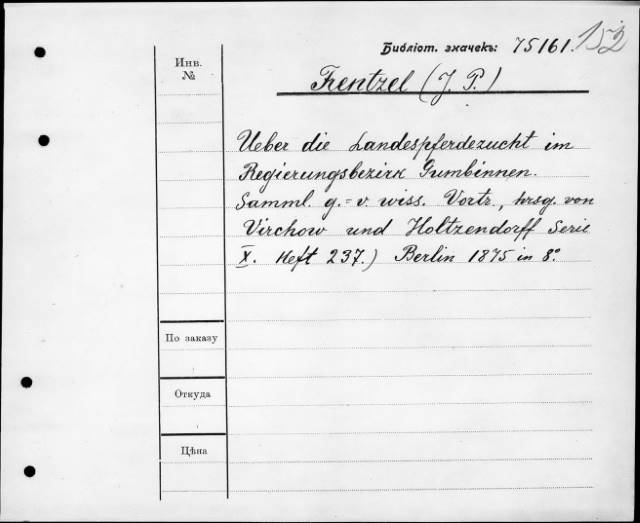 Библіот. значекъ: 75161. 152
Инв.
№
Frentzel (J. P.)
Ueber die Landespferdezucht im
Regierungsbezirk Gumbinnen.
Samml. g.=v. wiss. Vortr., hrsg. von
Virchow und Holtzendorff Serie
X. Heft 237.) Berlin 1875 in 8°.
По заказу
Откуда
Цѣна